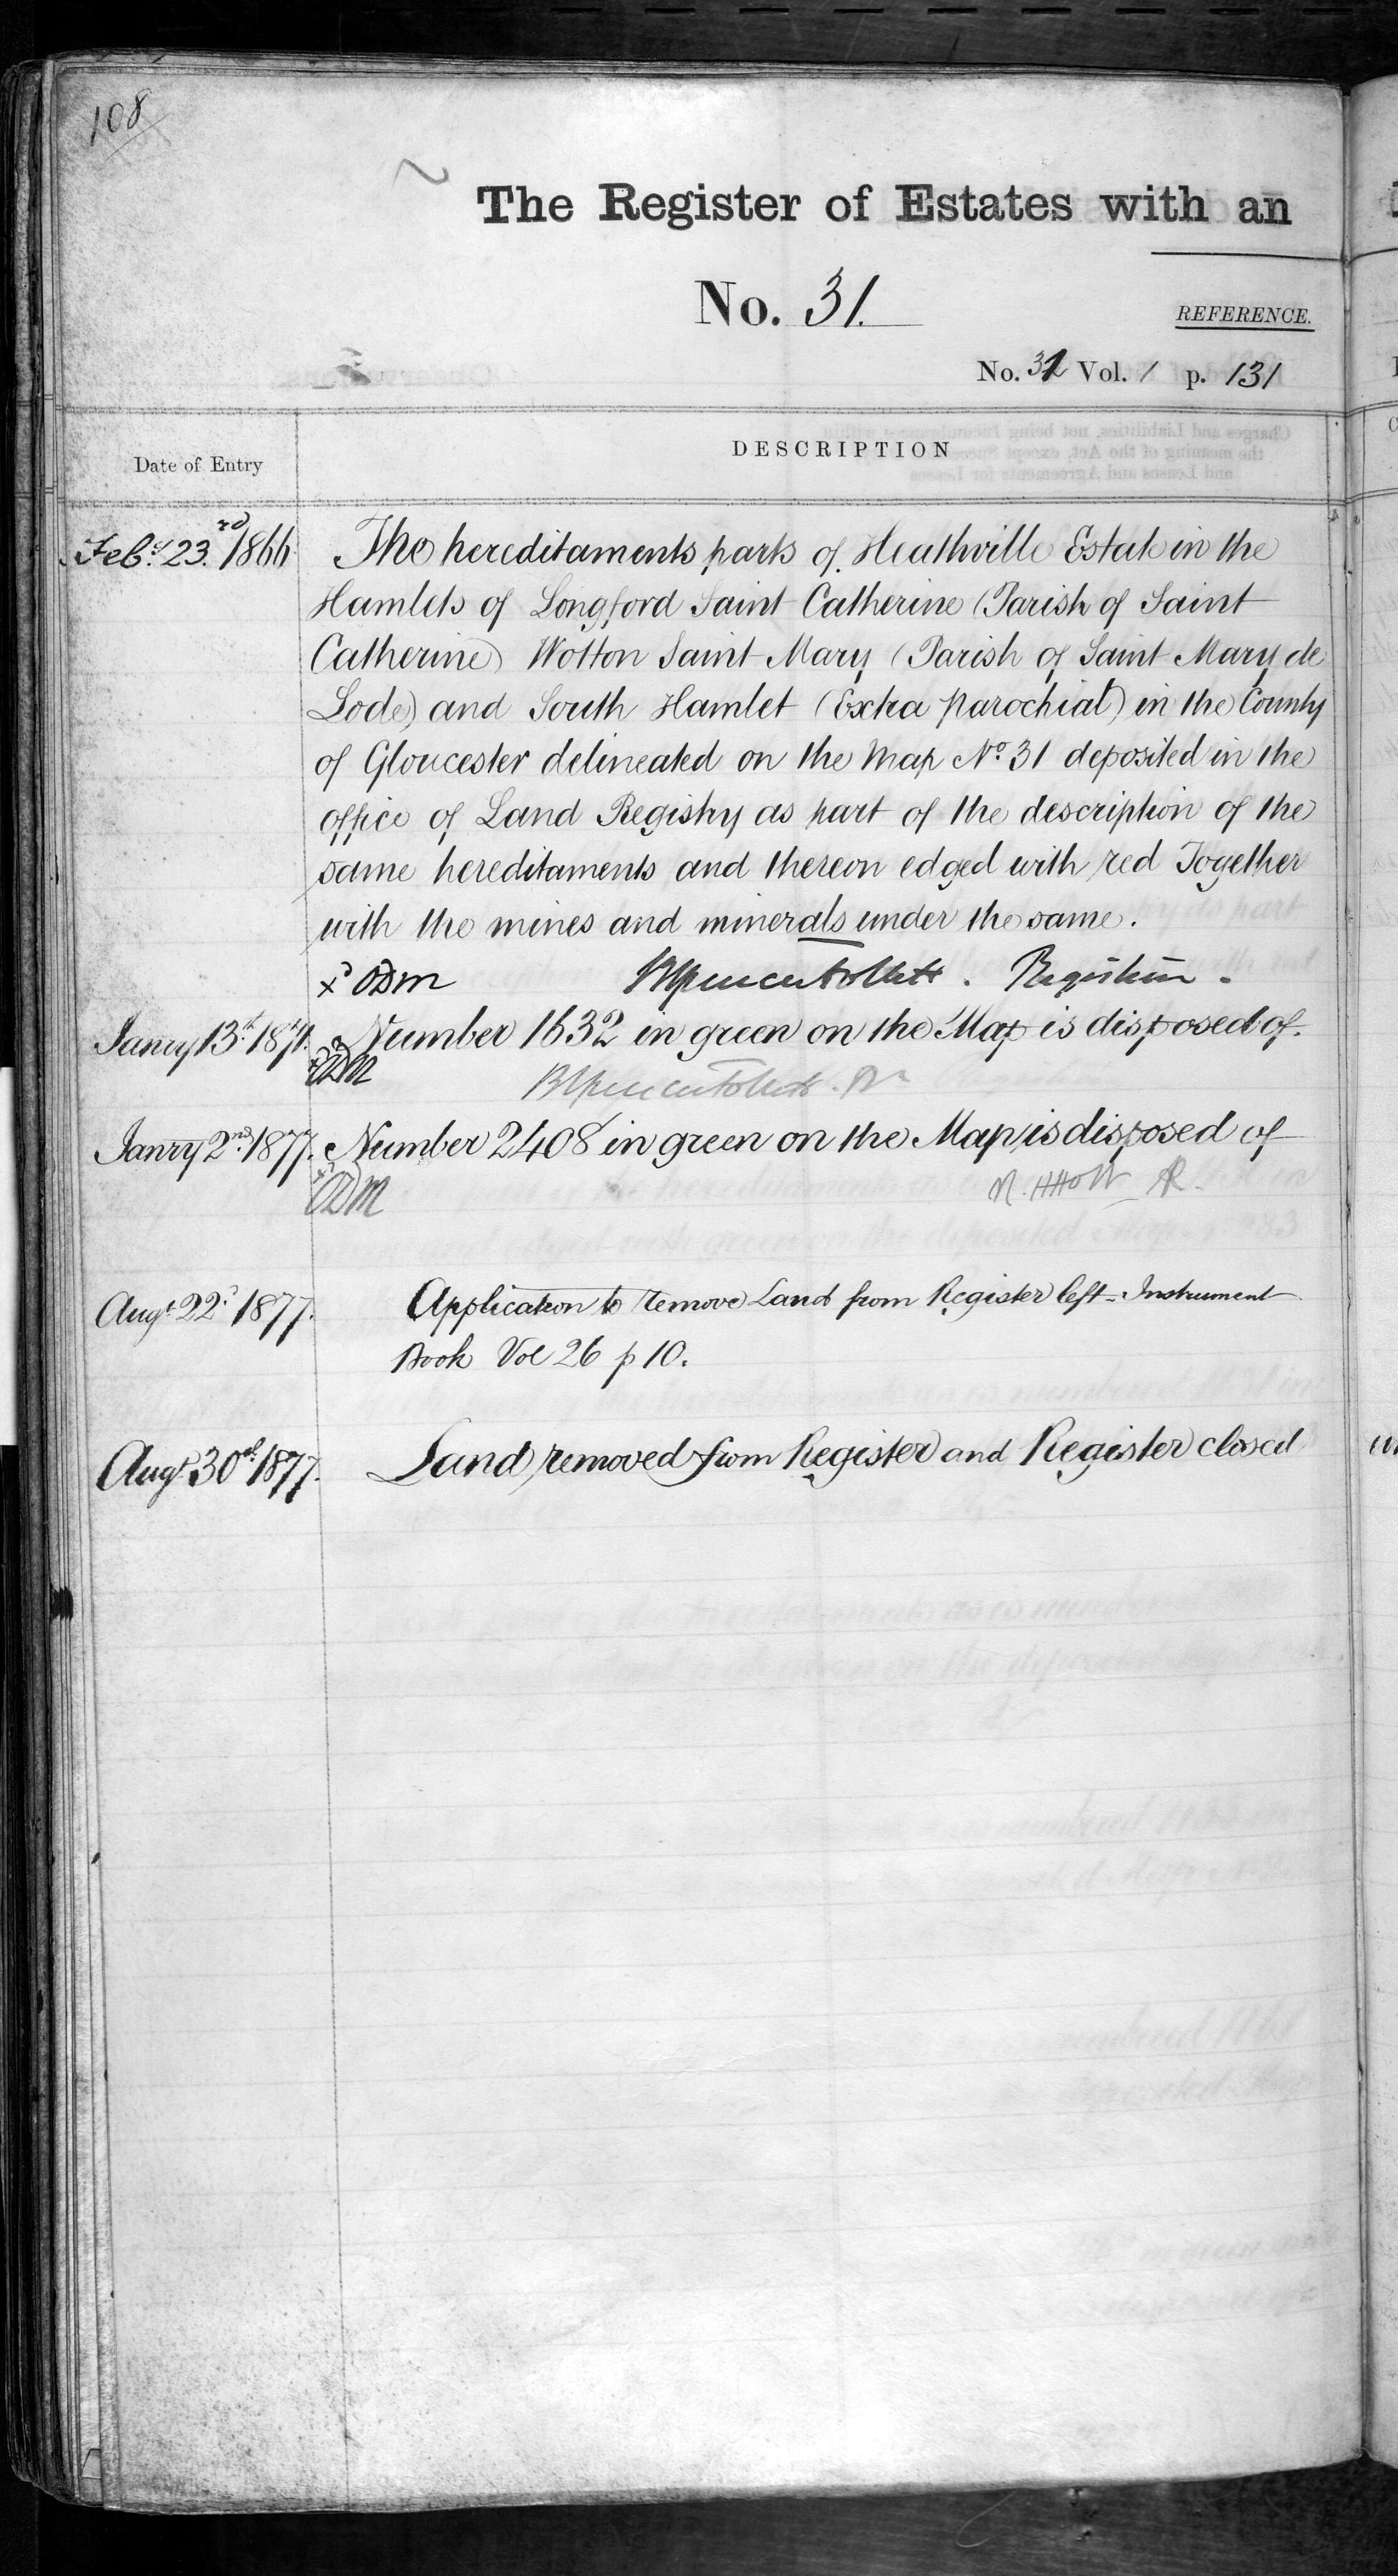 108
The Register of Estates with an
No. 31.
REFERENCE.
No. 31 Vol. 1 p. 131
Date of Entry
DESCRIPTION
Feby. 23rd. 1866
The hereditaments parts of Heathville Estate in the
Hamlets of Longford Saint Catherine (Parish of Saint
Catherine) Wotton Saint Mary (Parish of Saint Mary de
Lode) and South Hamlet (Extra parochial) in the County
of Gloucester delineated on the Map No. 31 deposited in the
office of Land Registry as part of the description of the
same hereditaments and thereon edged with red Together
with the mines and minerals under the same.
xd ODM Registrar.
Janry 13th. 1871. Number 1632 in green on the Map is disposed of.
xd ODM
Janry 2nd. 1877. Number 2408 in green on the Map is disposed of
xd ODM
R. H Holt AR.
Augt. 22d. 1877. Application to remove Land from Register left = Instrument
Book Vol 26 p 10.
Augt. 30th. 1877. Land removed from Register and Register closed